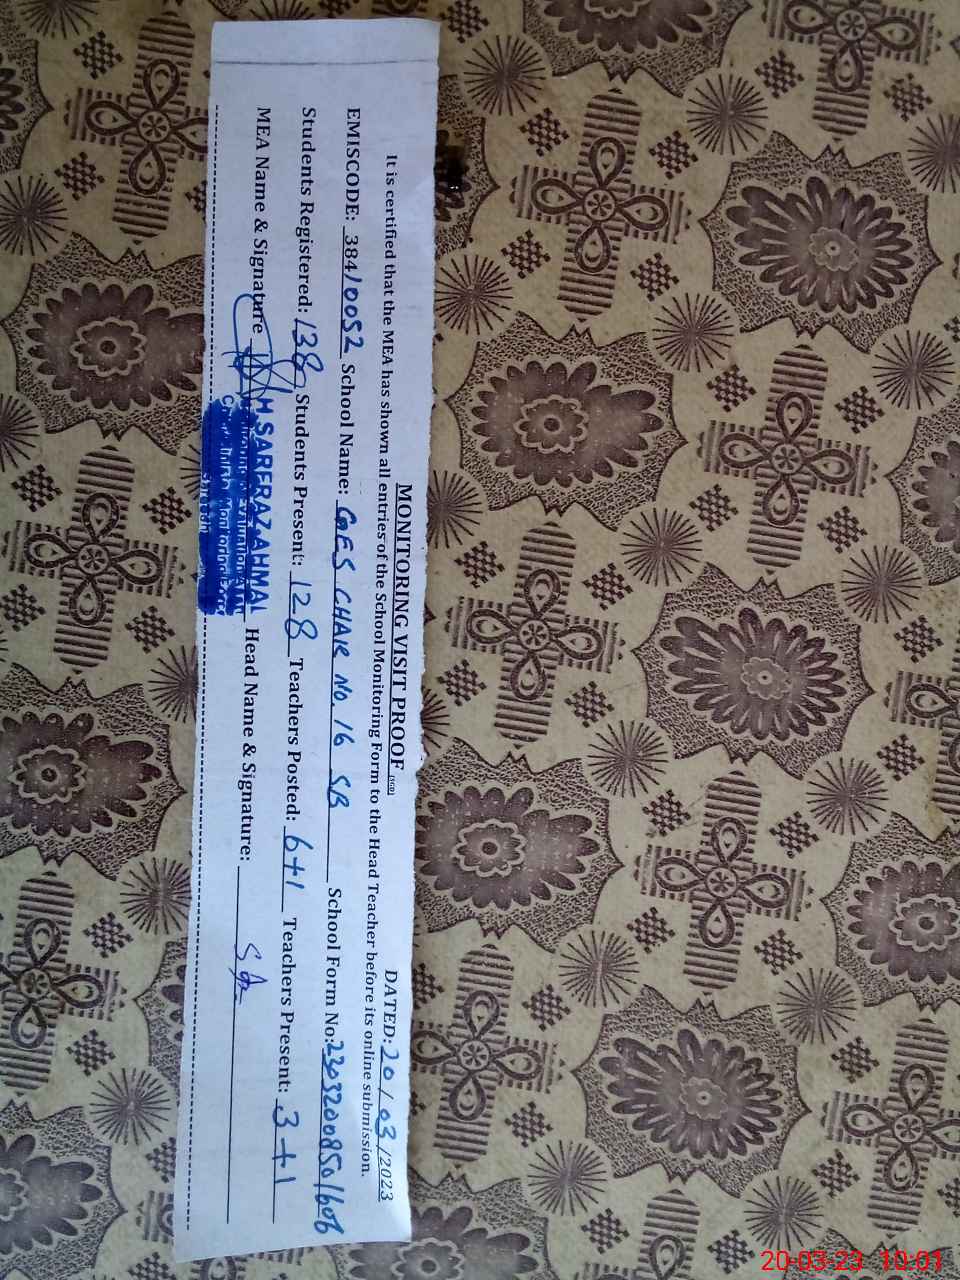 MONITORING VISIT PROOF
DATED: 20/03/2023
It is certified that the MEA has shown all entries of the School Monitoring Form to the Head Teacher before its online submission.
EMISCODE: 38410052 School Name: GES CHAK NO. 16 SB School Form No:
Students Registered: 138 Students Present: 128 Teachers Posted: 6+1 Teachers Present: 3+1
MEA Name & Signature H SARFRAZ AHMA Head Name & Signature: SA
20-03-23 10:01